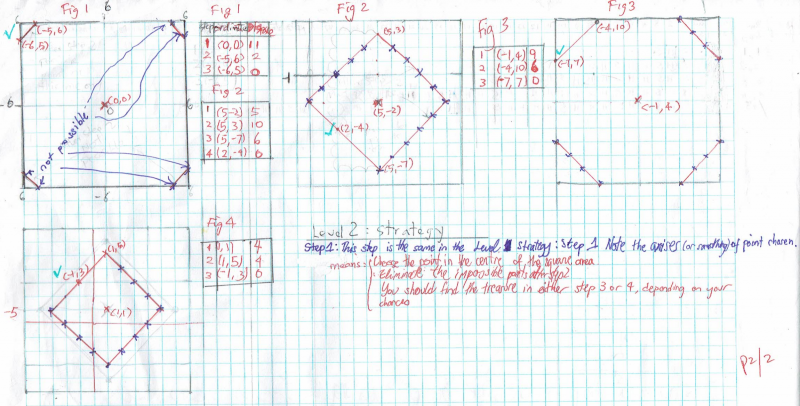 Fig 1
6
6
6
(-5,6)
(-6,5)
-6
6
(0,0)
0
not possible
6
-6
6
Fig 1
1 (0,0) 11
2 (-5,6) 2
3 (-6,5) 0
Fig 2
1 (5-2) 5
2 (5,3) 10
3 (5,-7) 6
4 (2,-4) 0
Fig 2
(5,3)
(5,-2)
(2,-4)
(5,-7)
Fig 3
1 (-1,4) 9
2 (-4,10) 6
3 (-7,7) 0
Fig 3
(-4,10)
(-7,7)
(-1,4)
(1,5)
(-1,3)
-5
(1,1)
Fig 4
1 (1,1) 4
2 (1,5) 4
3 (-1,3) 0
Level 2 : Strategy
Step 1: This step is the same in the Level strategy: Step 1 Note the (or nothing) of point chosen.
means: Choose the point in the centre of the square area
Eliminate the impossible parts
You should find the treasure in either step 3 or 4, depending on your
chances
p2/2